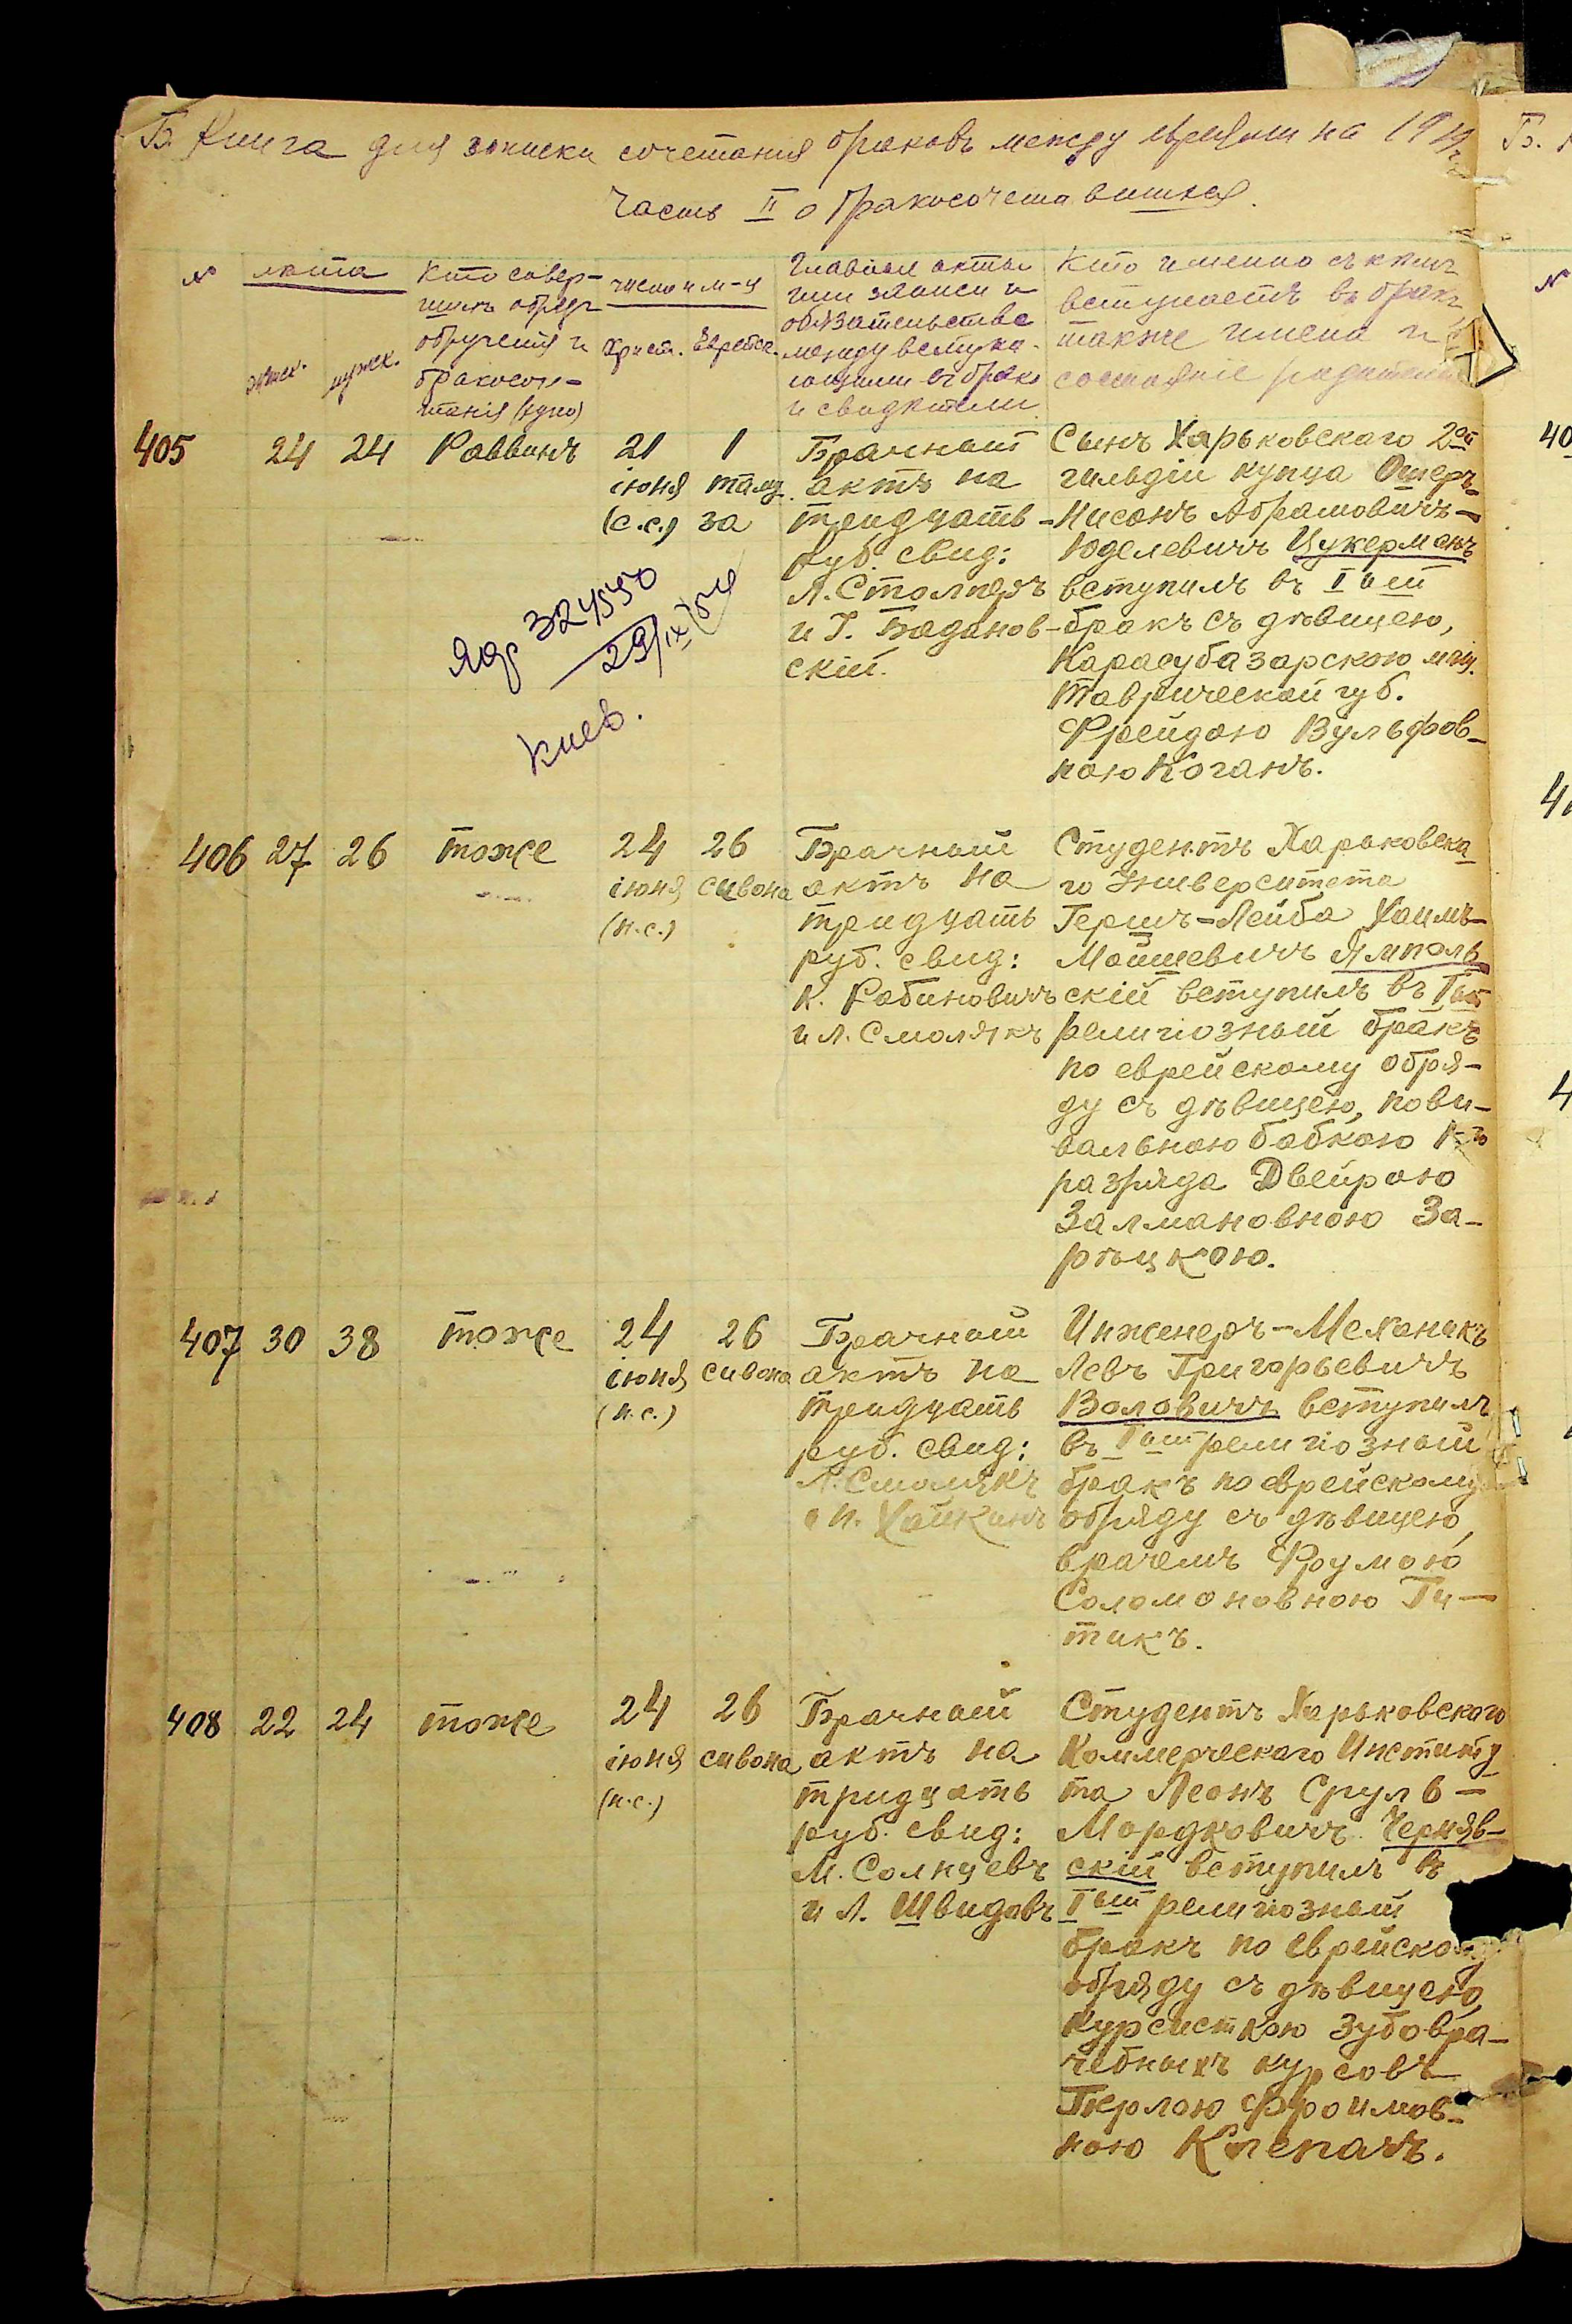 Б. Книга для записки сочетанія браковъ между евреями на 19
Часть II о бракосочетавшихся.
№
лѣта
женск.
мужск.
Кто совер-
шилъ обрядъ
обрученія и
бракосоч-
танія
число и м-ц
Христ.
Еврейск.
Главные акты
или записи и
обязательства
между вступа-
ющими въ бракъ
и свидѣтели
Кто именно съ кѣмъ
вступаетъ въ бракъ,
также имена и
состояніе родителей
405
24
24
Раввинъ
21
іюня
(с.с.)
1
тамуза
за
Брачный
актъ на
тридцать
руб. свид:
Л. Столперъ
и Г. Бадонов-
скій.
Сынъ Харьковскаго 2ой
гильдіи купца Ошеръ-
Нисонъ Абрамовичъ-
Юделевичъ Цукерманъ
вступилъ въ Iый
бракъ съ дѣвицею,
Карасубазарскою мѣщ.
Таврической губ.
Фрейдою Вульфов-
ною Коганъ.
324550
29/IX 54
Киев.
406
27
26
тоже
24
іюня
(н.с.)
26
сивона
Брачный
актъ на
тридцать
руб. свид:
К. Рабиновичъ
и Л. Смолякъ
Студентъ Харьковска
го Университета
Гершъ-Лейба Хаимъ-
Мошшевичъ Ямполь
скій вступилъ въ Iый
религіозный бракъ
по еврейскому обря-
ду съ дѣвицею, пови-
вальною бабкою
разряда Двейрою
Залмановною За-
рѣцкою.
407
30
38
тоже
24
іюня
(н.с.)
26
сивона
Брачный
актъ на
тридцать
руб. свид:
Л. Смолякъ
и Хайкинъ
Инженеръ-Механикъ
Левъ Григорьевичъ
Воловичъ вступилъ
въ Iый религіозный
бракъ по еврейскому
обряду съ дѣвицею,
врачемъ Фрумою
Соломоновною Ги-
тикъ.
408
22
24
тоже
24
іюня
(н.с.)
26
сивона
Брачный
актъ на
тридцать
руб. свид:
М. Солнцевъ
и Л. Швидовъ
Студентъ Харьковскаго
Коммерческаго Институ
та Леонъ Сруль-
Мордковичъ Черняв-
скій вступилъ въ
Iый религіозный
бракъ по еврейскому
обряду съ дѣвицею,
курсисткою Зубовра-
чебныхъ курсовъ
Перлою Фроимов-
ною Клепачъ.